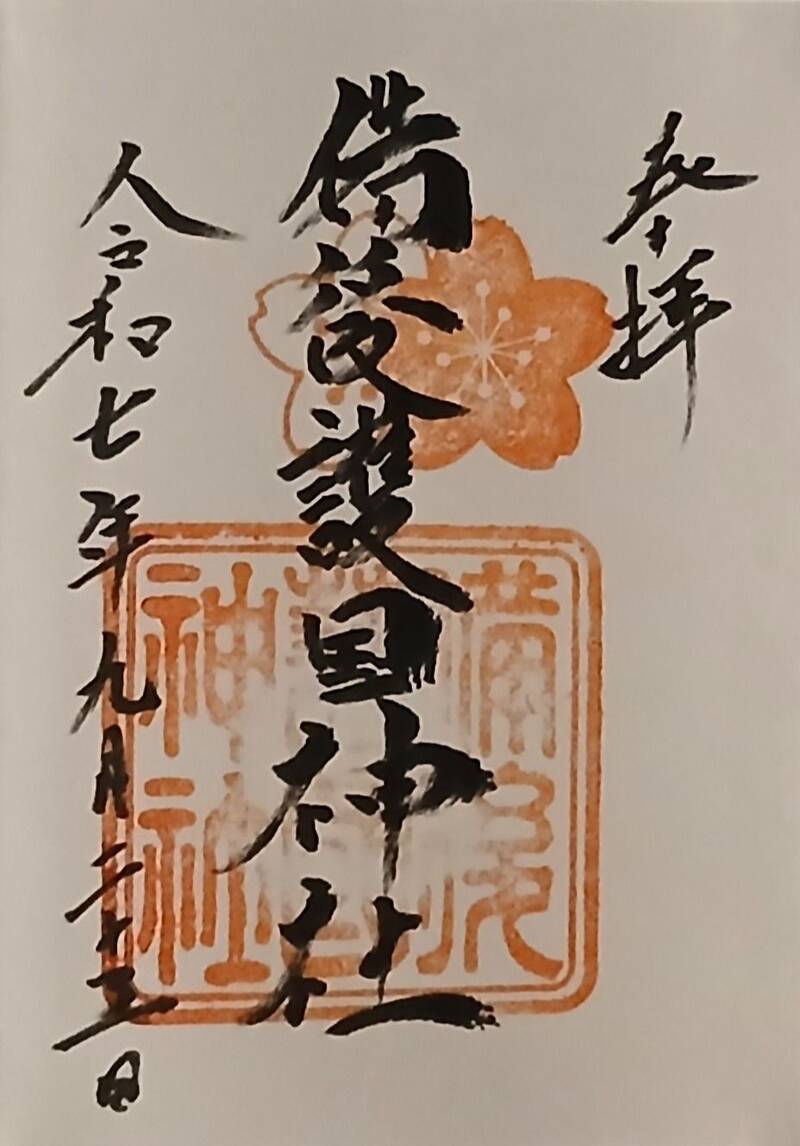 奉拝
備後護国神社
令和七年九月二十三日
備後
護国
神社